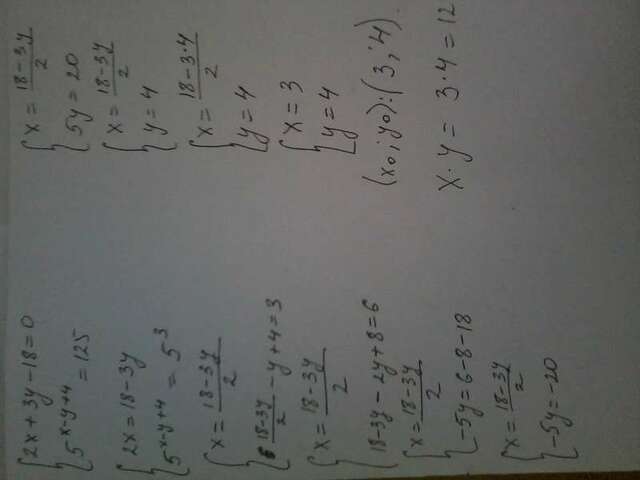 2x+3y-18=0
5^x-y+4=125
2x=18-3y
5^x-y+4=5^3
x=18-3y/2
18-3y/2-y+4=3
x=18-3y/2
18-3y-2y+8=6
x=18-3y/2
-5y=6-8-18
x=18-3y/2
-5y=-20
x=18-3y/2
5y=20
x=18-3y/2
y=4
x=18-3·4/2
y=4
x=3
y=4
(x₀;y₀):(3;4).
x·y=3·4=12